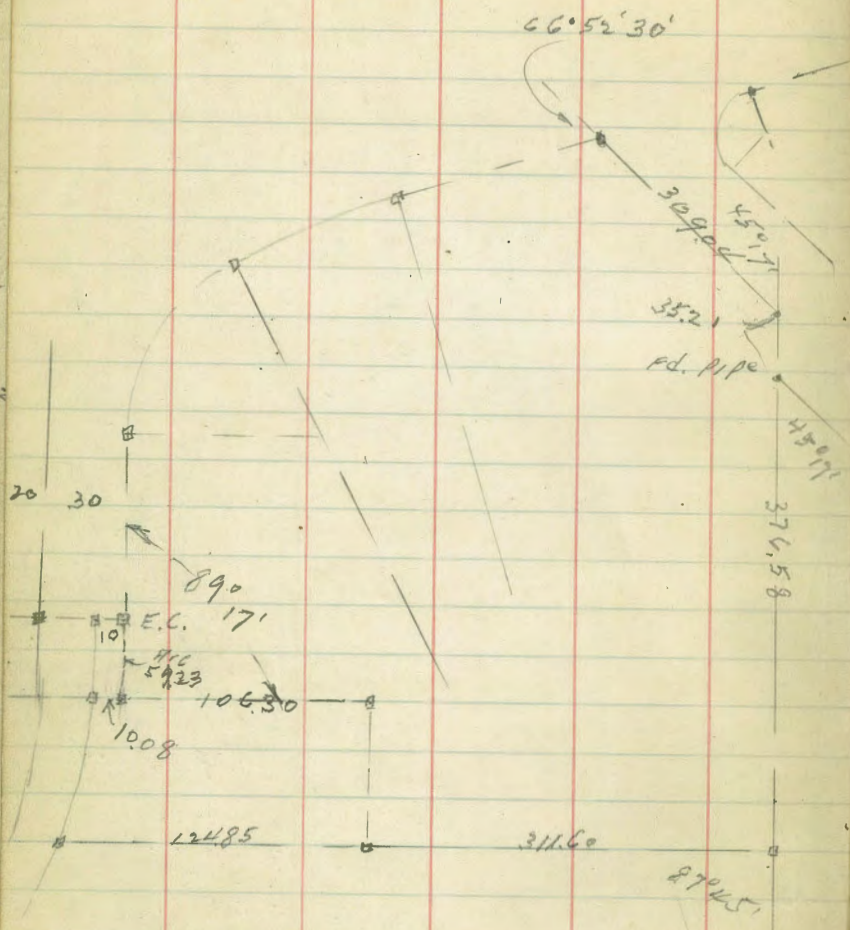 66°52'30'
309.04
45°17'
35.21
Fd. pipe
45°17'
20 30
376.58
890
17'
E.C.
10
Arc
59.23
106.30
10.08
124.85 311.60
87°45'